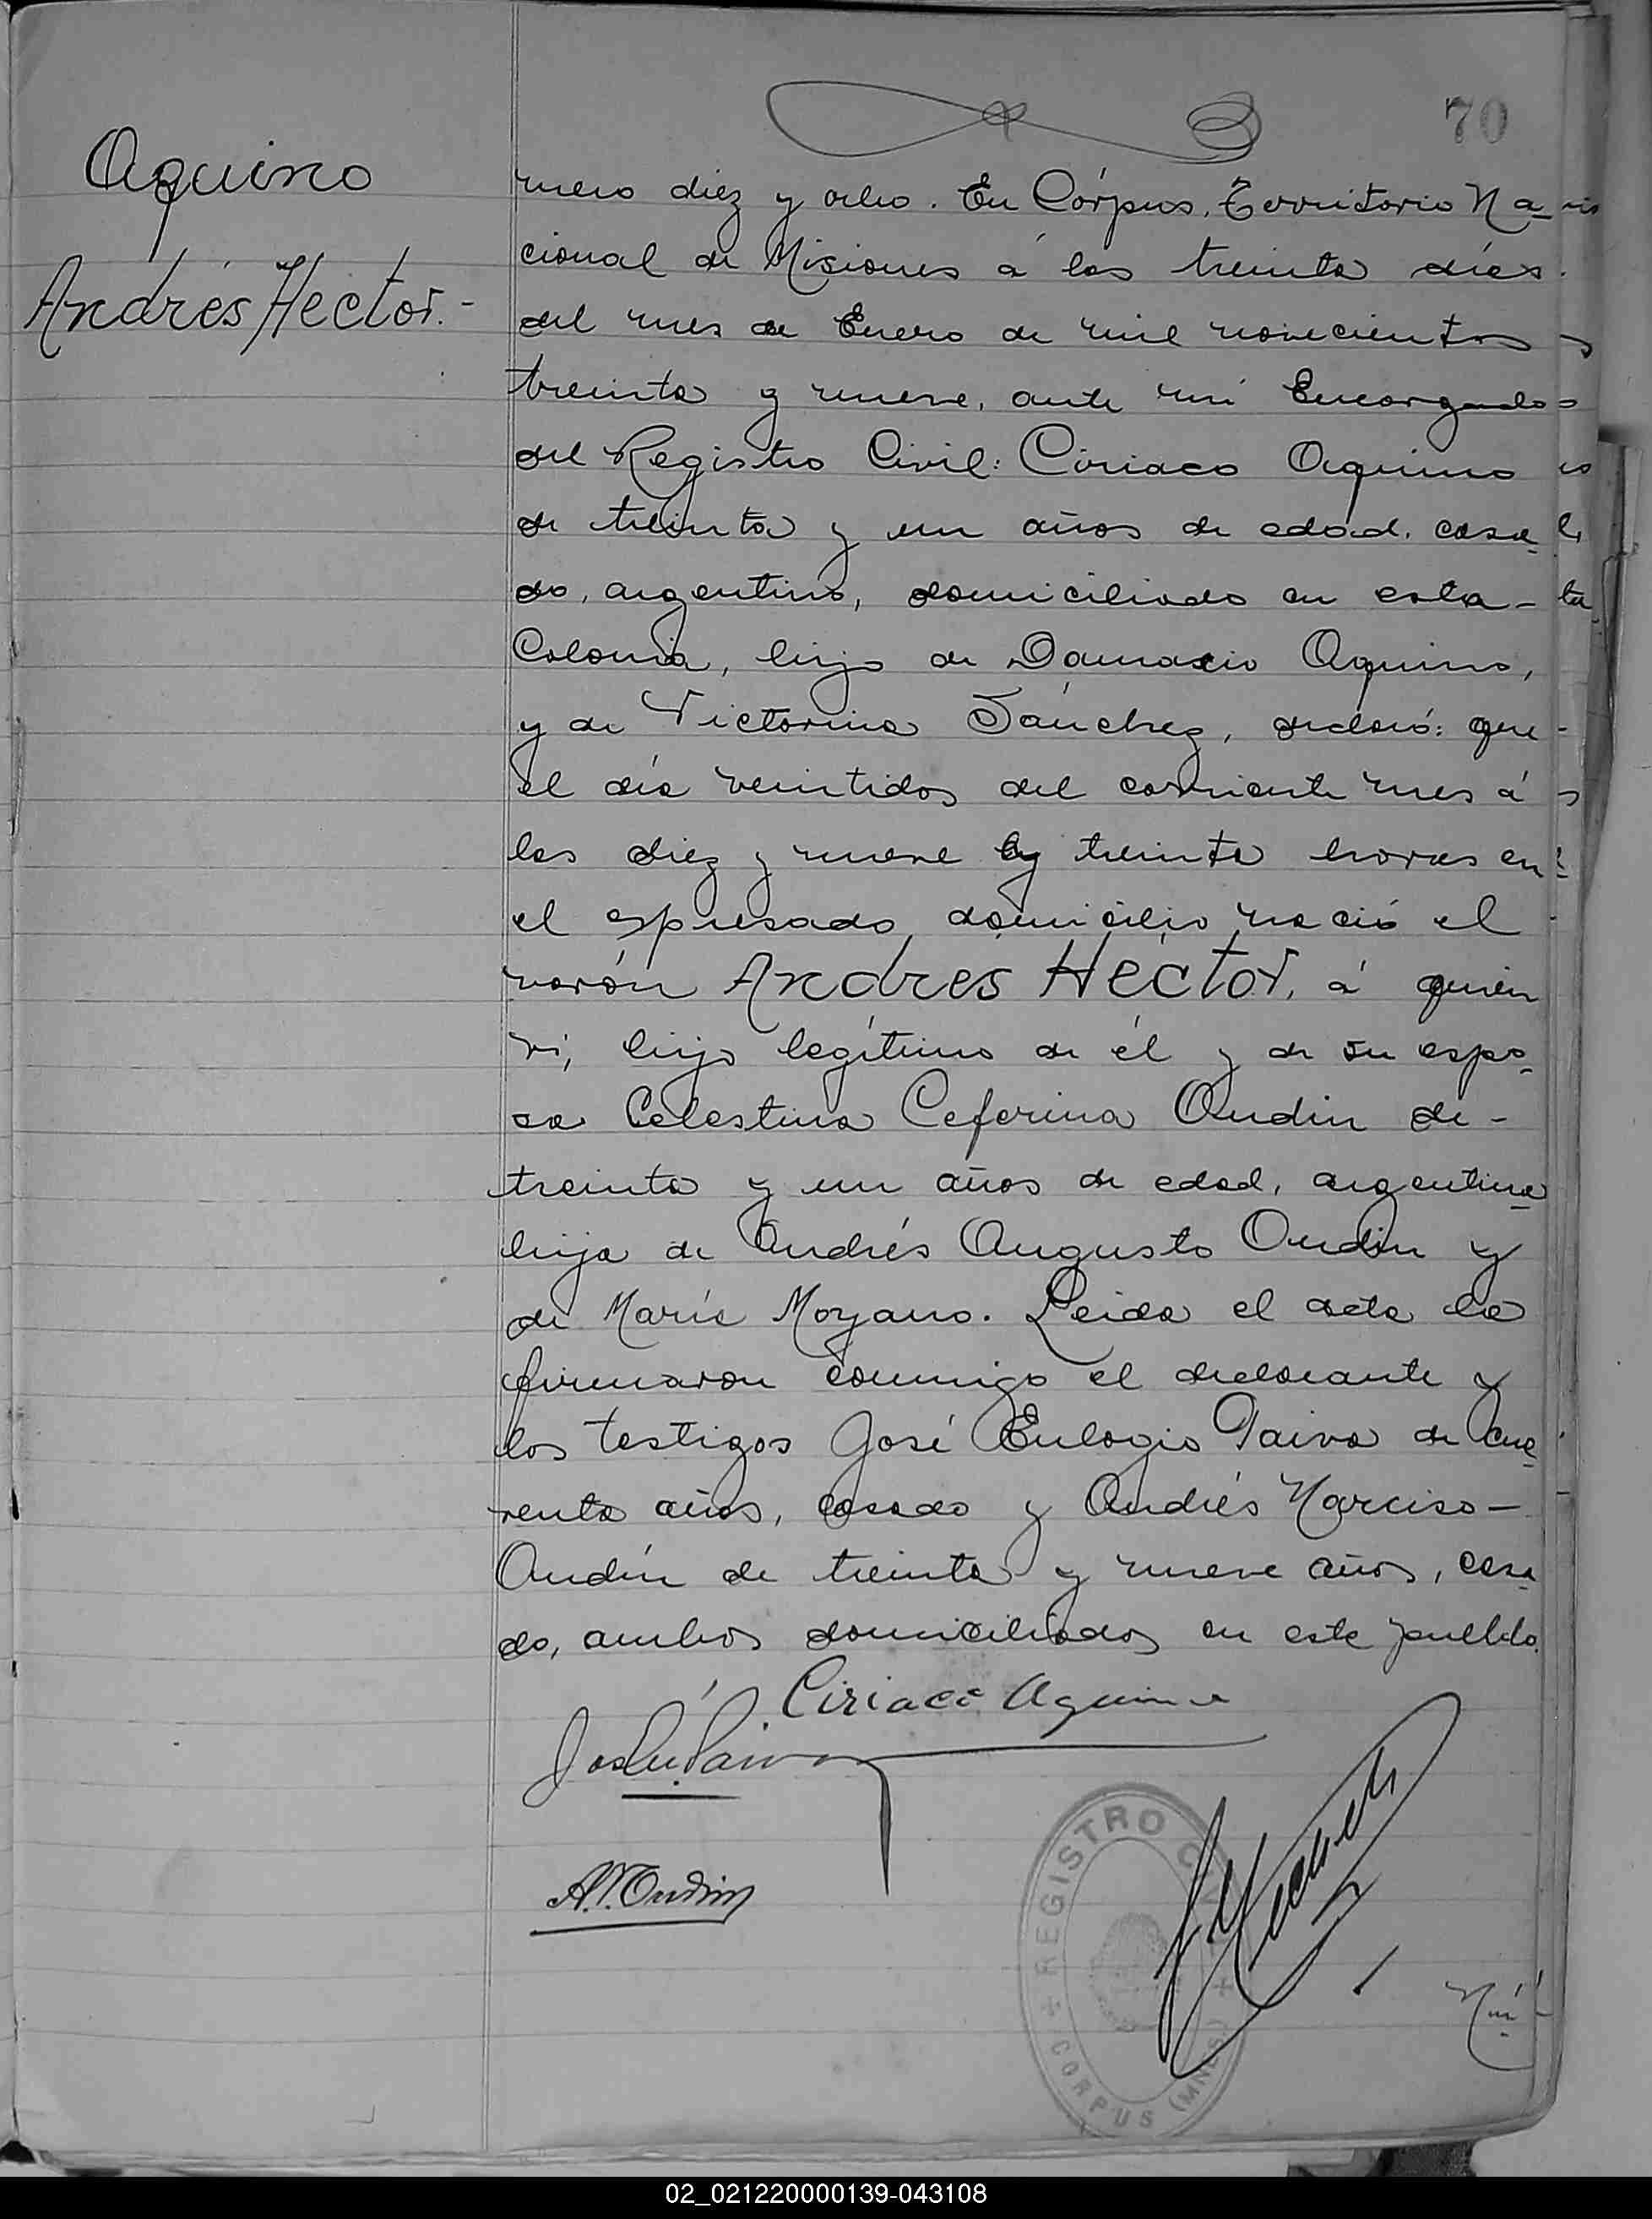 70
Aquino
Andrés Hector.-
mero diez y ocho. En Córpus, Territorio Na_
cional de Misiones á los treinta días
del mes de Enero de mil novecientos
treinta y nueve, ante mí Encargado
del Registro Civil: Ciriaco Aquino
de treinta y un años de edad, casa_
do, argentino, domiciliado en esta -
Colonia, hijo de Damacio Aquino,
y de Victorina Sánchez, declaró: que
el día veintidos del corriente mes á
las diez y nueve y treinta horas en
el espresado domicilio nació el
varón Andrés Héctor, á quien
ví, hijo legítimo de él y de su espo_
sa Celestina Ceferina Oudin de -
treinta y un años de edad, argentina
hija de Andrés Augusto Oudin y
de María Moyano. Leida el acta la
firmaron conmigo el declarante y
los testigos José Eulogio Paiva de cua_
renta años, casado y Andrés Narciso -
Oudín de treinta y nueve años, casa
do, ambos domiciliados en este pueblo.
Ciriaco Aquino
José Eu. Paiva
A. N. Oudin
REGISTRO CIVIL
CORPUS (MNES)
Nú-
02_021220000139-043108